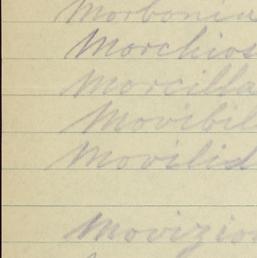 Morbonia
Morchios
Morcilla
Movibil
Movilid
Movizio